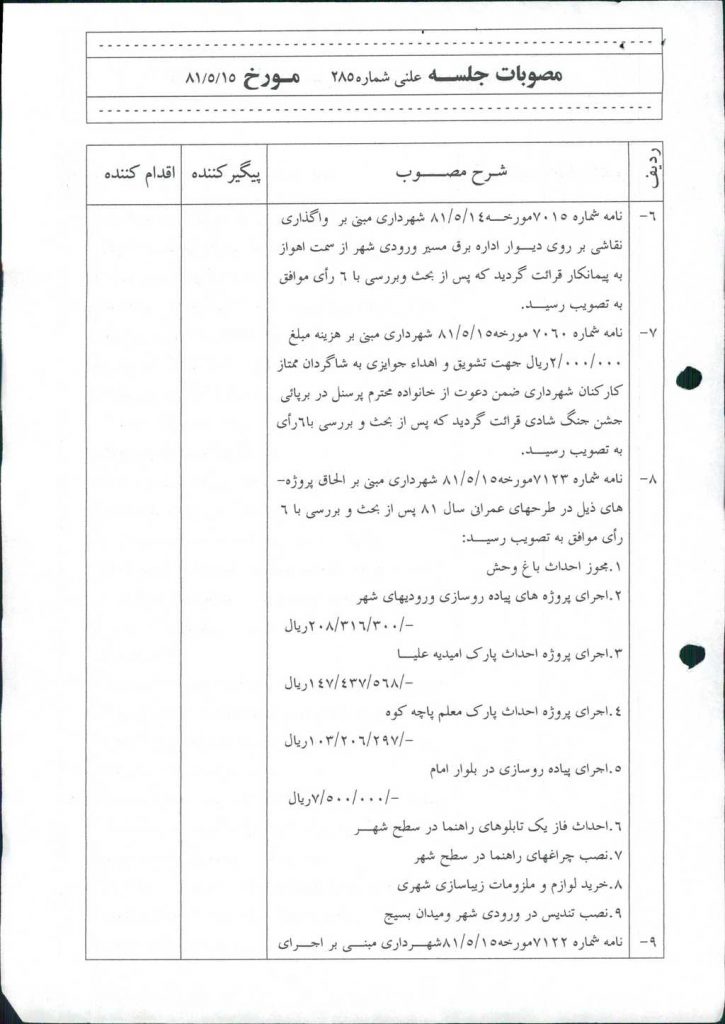 مصوبات جلسه علنی شماره ۲۸۵ مورخ ۸۱/۵/۱۵
ردیف شرح مصوب پیگیر کننده اقدام کننده
۶- نامه شماره ۷۰۱۵مورخه۸۱/۵/۱۴ شهرداری مبنی بر واگذاری
نقاشی بر روی دیوار اداره برق مسیر ورودی شهر از سمت اهواز
به پیمانکار قرائت گردید که پس از بحث وبررسی با ۶ رأی موافق
به تصویب رسید.
۷- نامه شماره ۷۰۶۰ مورخه۸۱/۵/۱۵ شهرداری مبنی بر هزینه مبلغ
۲/۰۰۰/۰۰۰ریال جهت تشویق و اهداء جوایزی به شاگردان ممتاز
کارکنان شهرداری ضمن دعوت از خانواده محترم پرسنل در برپائی
جشن جنگ شادی قرائت گردید که پس از بحث و بررسی با۶رأی
به تصویب رسید.
۸- نامه شماره ۷۱۲۳مورخه۸۱/۵/۱۵ شهرداری مبنی بر الحاق پروژه-
های ذیل در طرحهای عمرانی سال ۸۱ پس از بحث و بررسی با ۶
رأی موافق به تصویب رسید:
۱.مجوز احداث باغ وحش
۲.اجرای پروژه های پیاده روسازی ورودیهای شهر
۲۰۸/۳۱۶/۳۰۰/-ریال
۳.اجرای پروژه احداث پارک امیدیه علیا
۱۴۷/۴۳۷/۵۶۸/-ریال
۴.اجرای پروژه احداث پارک معلم پاچه کوه
۱۰۳/۲۰۶/۲۹۷/-ریال
۵.اجرای پیاده روسازی در بلوار امام
۷/۵۰۰/۰۰۰/-ریال
۶.احداث فاز یک تابلوهای راهنما در سطح شهر
۷.نصب چراغهای راهنما در سطح شهر
۸.خرید لوازم و ملزومات زیباسازی شهری
۹.نصب تندیس در ورودی شهر ومیدان بسیج
۹- نامه شماره ۷۱۲۲مورخه۸۱/۵/۱۵شهرداری مبنی بر اجرای